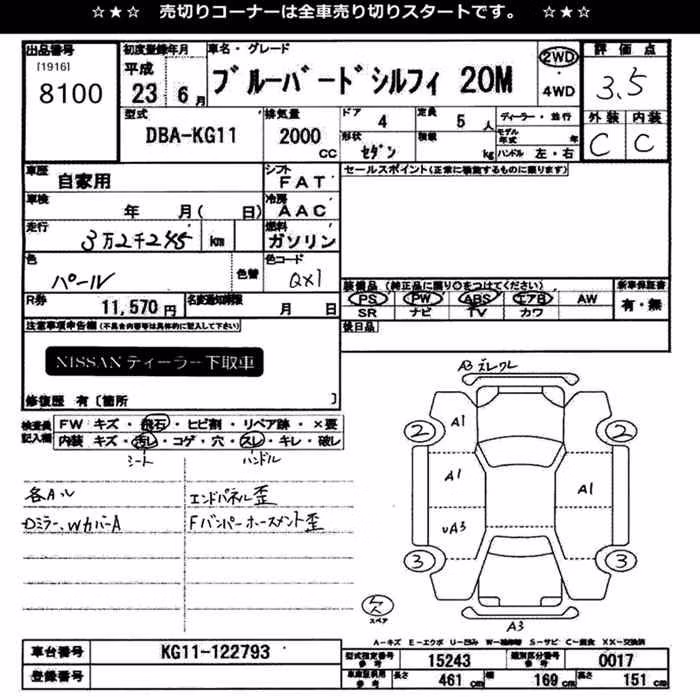 ☆★☆ 売切りコーナーは全車売り切りスタートです。 ☆★☆
出品番号
[1916]
8100
初度登録年月
平成
23 6月
車名・グレード
ブルーバードシルフィ 20M
2WD
4WD
評価点
3.5
外装 内装
C C
型式
DBA-KG11
排気量
2000
CC
ドア 4
定員 5人
形状 セダン
積載 kg
ディーラー・並行
モデル年式 年
ハンドル 左・右
車歴
自家用
シフト
FAT
セールスポイント(正常に機能するものに限ります)
車検
年 月( 日)
冷房
AAC
走行
3万2千245 km
燃料
ガソリン
色
パール
色替
色コード
QX1
装備品 (純正品に限り○をつけてください)
PS PW ABS エアB AW
SR ナビ TV カワ
新車保証書
有・無
R券
11,570円
名変通知期限
月 日
後日品
注意事項申告欄(不具合内容等は具体的に記入して下さい)
NISSANディーラー下取車
修復歴 有〔箇所 〕
検査員記入欄
FW キズ・飛石・ヒビ割・リペア跡・×要
内装 キズ・汚レ・コゲ・穴・スレ・キレ・破レ
シート ハンドル
各A.U
エンドパネル歪
Dミラー、WカバーA
Fバンパーホースメント歪
A3 ズレワレ
2 A1 2
A1 A1
UA3
3 3
欠
スペア
A3
A-キズ E-エクボ U-凹み W-補修跡 S-サビ C-腐食 XX-交換済
車台番号
KG11-122793
型式指定番号
参考
15243
類別区分番号
参考
0017
登録番号
車庫証明用
参考
長さ 461 cm
幅 169 cm
高さ 151 cm